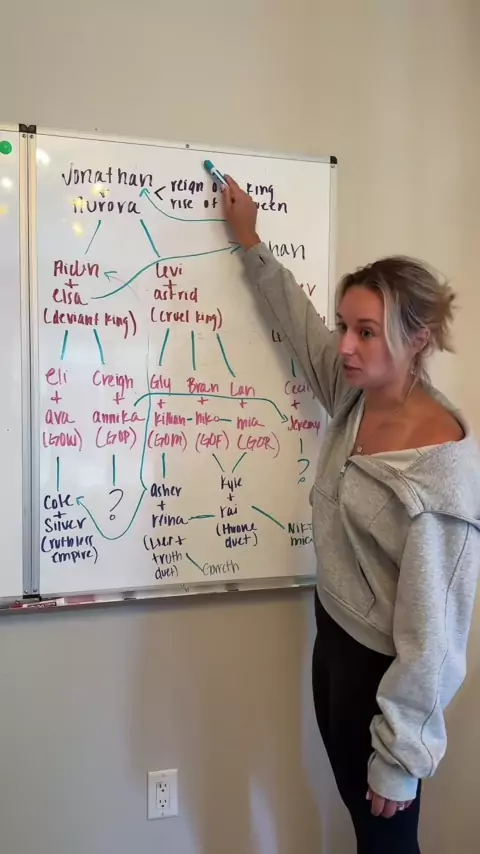 Jonathan
+
Aurora
reign of king
rise of queen
Aiden
+
elsa
(deviant king)
Levi
+
astrid
(cruel king)
eli
+
ava
(GOW)
Creigh
+
annika
(GOP)
Gly
+
killian
(GOM)
Bran
+
niko
(GOF)
Lan
+
mia
(GOR)
Jeremy
?
Cole
+
Silver
(ruthless
empire)
?
Asher
+
reina
(Lies +
truth
duet)
Gareth
Kyle
+
rai
(throne
duet)